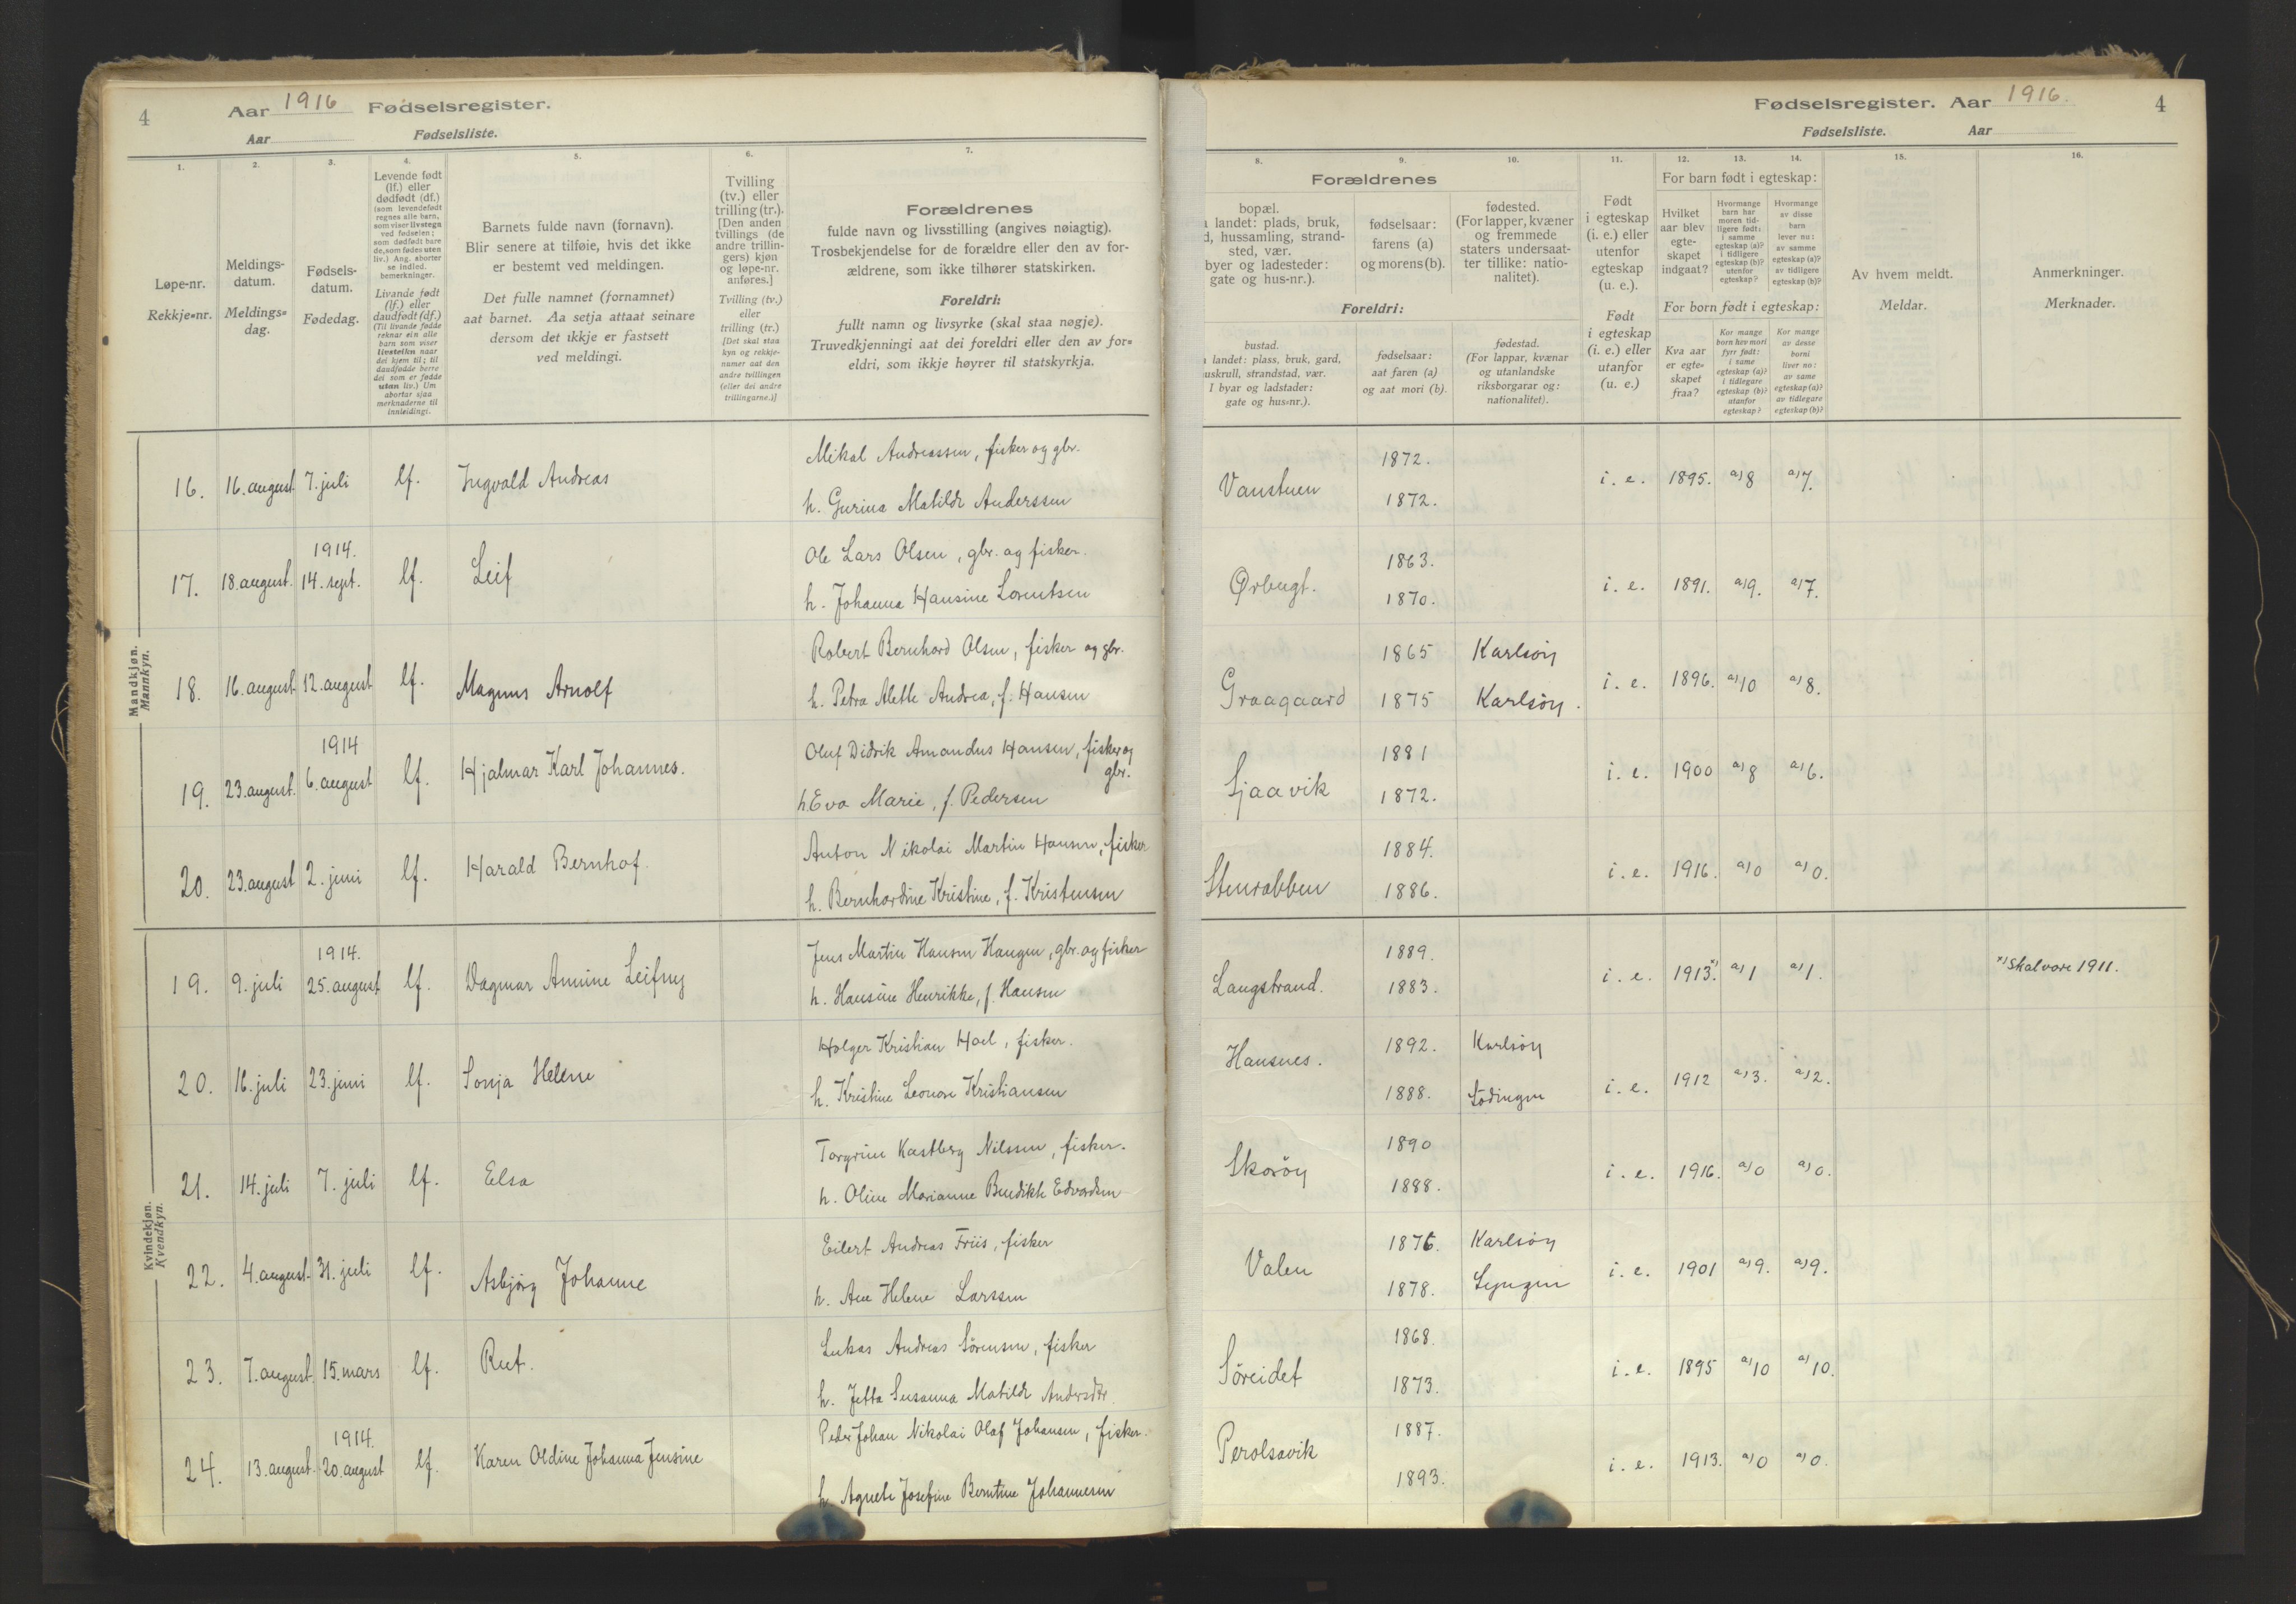 4 Aar 1916 Fødselsregister.
Aar Fødselsliste.
1. 2. 3. 4. 5. 6. 7.
Løpe-nr.
Rekkje=nr.
Meldings-
datum.
Meldings=
dag.
Fødsels-
datum.
Fødedag.
Levende født
(lf.) eller
dødfødt (df.)
(som levendefødt
regnes alle barn,
som viser livstegn
ved fødselen;
som dødfødt bare
de, som fødes uten
liv.) Ang. aborter
se indled.
bemerkninger.
Livande født
(lf.) eller
daudfødt (df.)
(Til livande fødde
reknar ein alle
barn som viser
livsteikn naar
dei kjem til; til
daudfødde berre
dei som er fødde
utan liv.) Um
abortar sjaa
merknaderne til
innleidingi.
Barnets fulde navn (fornavn).
Blir senere at tilføie, hvis det ikke
er bestemt ved meldingen.
Det fulle namnet (fornamnet)
aat barnet. Aa setja attaat seinare
dersom det ikkje er fastsett
ved meldingi.
Tvilling
(tv.) eller
trilling (tr.).
[Den anden
tvillings (de
andre trillin-
gers) kjøn
og løpe-nr.
anføres.]
Tvilling (tv.)
eller
trilling (tr.)
[Det skal staa
kyn og rekkje-
numer aat den
andre tvillingen
(eller dei andre
trillingarne.)]
Forældrenes
fulde navn og livsstilling (angives nøiagtig).
Trosbekjendelse for de forældre eller den av for-
ældrene, som ikke tilhører statskirken.
Foreldri:
fullt namn og livsyrke (skal staa nøgje).
Truvedkjenningi aat dei foreldri eller den av for=
eldri, som ikkje høyrer til statskyrkja.
Mandkjøn.
Mannkyn.
Mikal Andreassen, fisker og gbr.
16. 16. august 7. juli lf. Ingvald Andreas
h. Gurina Matilde Anderssen
1914. Ole Lars Olsen, gbr. og fisker.
17. 18. august. 14. sept. lf. Leif
h. Johanna Hansine Lorentsen
Robert Bernhard Olsen, fisker og gbr.
18. 16. august 12. august lf. Magnus Arnolf
h. Petra Alette Andrea, f. Hansen
1914 Oluf Didrik Amandus Hansen, fisker og
gbr.
19. 23. august. 6. august lf. Hjalmar Karl Johannes.
h. Eva Marie, f. Pedersen
Anton Nikolai Martin Hansen, fisker
20. 23. august 2. juni lf. Harald Bernhof.
h. Bernhardine Kristine, f. Kristensen
Kvindekjøn.
Kvendkyn.
1914. Jens Martin Hansen Haugen, gbr. og fisker
19. 9. juli 25. august lf. Dagmar Annine Leifny
h. Hansine Henrikke, f. Hansen
Holger Kristian Hoel, fisker.
20. 16. juli 23. juni lf. Sonja Helene
h. Kristine Leonore Kristiansen
Torgrim Kastberg Nilssen, fisker.
21. 14. juli 7. juli lf. Elsa
h. Oline Marianne Benedikte Edvardsen
Eilert Andreas Friis, fisker
22. 4. august. 31. juli lf. Asbjørg Johanne
h. Ane Helene Larssen
Lukas Andreas Sörensen, fisker
23. 7. august. 15. mars lf. Rut.
h. Jetta Susanna Matilde Andersdtr.
1914. Peder Johan Nikolai Olaf Johansen, fisker.
24. 13. august. 20. august lf. Karen Oldine Johanna Jensine
h. Agnete Josefine Berntine Johannesen
Fødselsregister. Aar 1916. 4
Fødselsliste. Aar
8. 9. 10. 11. 12. 13. 14. 15. 16.
Forældrenes
bopæl.
landet: plads, bruk,
d, hussamling, strand-
sted, vær.
byer og ladesteder:
gate og hus-nr.).
fødselsaar:
farens (a)
og morens (b).
fødested.
(For lapper, kvæner
og fremmede
staters undersaat-
ter tillike: natio-
nalitet).
Foreldri:
bustad.
landet: plass, bruk, gard,
uskrull, strandstad, vær.
I byar og ladstader:
gate og hus=nr.).
fødselsaar:
aat faren (a)
og aat mori (b).
fødestad.
(For lappar, kvænar
og utanlandske
riksborgarar og:
nationalitet).
Født
i egteskap
(i. e.) eller
utenfor
egteskap
(u. e.).
Født
i egteskap
(i. e.) eller
utanfor
(u. e.)
For barn født i egteskap:
Hvilket
aar blev
egte-
skapet
indgaat?
Hvormange
barn har
moren tid-
ligere født:
i samme
egteskap (a)?
i tidligere
egteskap (b)?
utenfor
egteskap?
Hvormange
av disse
barn
lever nu:
av samme
egteskap (a)?
av tidligere
egteskap (b)?
For born født i egteskap:
Kva aar
er egte=
skapet
fraa?
Kor mange
born hev mori
fyrr født:
i same
egteskap (a)?
i tidlegare
egteskap (b)?
utanfor
egteskap?
Kor mange
av desse
borni
liver no:
av same
egteskap (a)?
av tidlegare
egteskap (b)?
Av hvem meldt.
Meldar.
Anmerkninger.
Merknader.
1872.
Vanstuen i. e. 1895. a) 8 a) 7.
1872.
1863.
Ørbugt. i. e. 1891. a) 9. a) 7.
1870.
1865 Karlsöy
Graagaard i. e. 1896. a) 10 a) 8.
1875 Karlsöy.
1881
Sjaavik i. e. 1900 a) 8 a) 6.
1872.
1884.
Stenrabben i. e. 1916. a) 0 a) 0.
1886.
1889.
Langstrand. i. e. 1913. x) a) 1 a) 1. x) Skal vare 1911.
1883.
1892. Karlsöy
Hansnes. i. e. 1912 a) 3. a) 2.
1888. Lödingen
1890
Skoröy i. e. 1916. a) 0 a) 0.
1888.
1876. Karlsöy
Valen i. e. 1901 a) 9. a) 9.
1878. Lyngen
1868.
Söreidet i. e. 1895 a) 10 a) 10.
1873.
1887.
Perolsavik i. e. 1913. a) 0 a) 0.
1893.